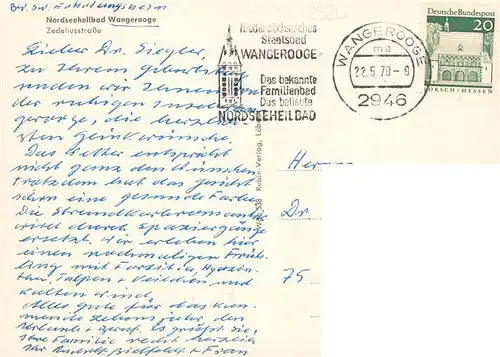 Nordseeheilbad Wangerooge
Zedeliusstraße
Niedersächsisches
Staatsbad
WANGEROOGE
Das bekannte
Familienbad
Das beliebte
NORDSEEHEILBAD
WANGEROOGE
ma
22.5.70-9
2946
Deutsche Bundespost
20
LORSCH/HESSEN
Lieber Dr. Siegler,
zu Ihrem Geburtstag
senden wir Ihnen von
der ruhigen Insel
die herzlich-
sten Glückwünsche.
Das Wetter entspricht
nicht ganz den Wünschen
trotzdem hat das Gesicht
schon eine gesunde Farbe.
Die Strandkorbromantik
wird durch Spaziergänge
ersetzt. Wir erleben hier
einen nochmaligen Früh-
ling mit Forsitia, Hyazin-
then, Tulpen + Veilchen und
kalten Wind.
Alles gute für das kom-
mende Lebensjahr, den
Urlaub + Beruf. Es grüßt Sie,
Ihre Familie recht herzlich
Ihr + Frau
Herrn
Dr
75
Rubin-Verlag, Lüb